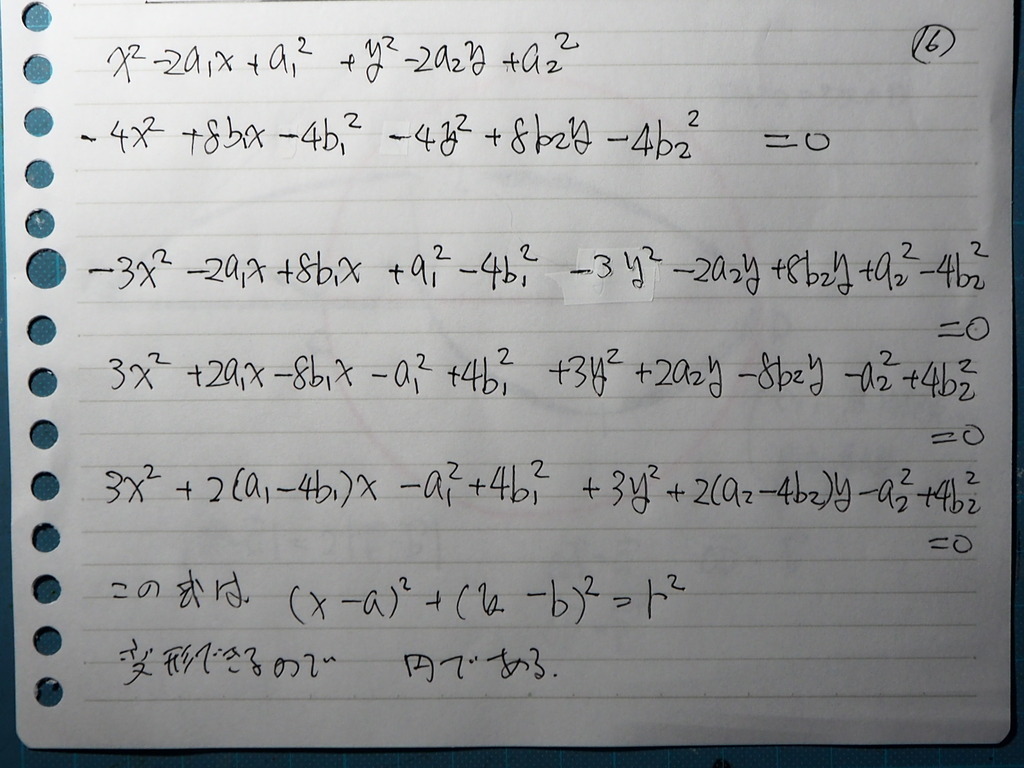 ⑯
x² -2a₁x + a₁² + y² -2a₂y + a₂²
- 4x² + 8b₁x - 4b₁² - 4y² + 8b₂y - 4b₂² = 0
-3x² -2a₁x +8b₁x + a₁² -4b₁² -3y² -2a₂y +8b₂y + a₂² -4b₂²
=0
3x² +2a₁x -8b₁x -a₁² +4b₁² +3y² +2a₂y -8b₂y -a₂² +4b₂²
=0
3x² + 2(a₁-4b₁)x -a₁² +4b₁² +3y² + 2(a₂-4b₂)y -a₂² +4b₂²
=0
この式は (x-a)² + ( -b)² = r²
変形できるので 円である.